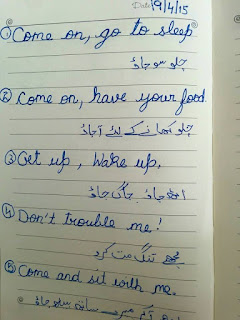 Date 9/4/15
① Come on, go to sleep
چلو سو جاؤ
② Come on, have your food.
چلو کھانے کے لئے آ جاؤ
③ Get up, Wake up.
اٹھ جاؤ، جاگ جاؤ
④ Don't trouble me!
مجھے تنگ مت کرو
⑤ Come and sit with me.
میرے ساتھ بیٹھ جاؤ